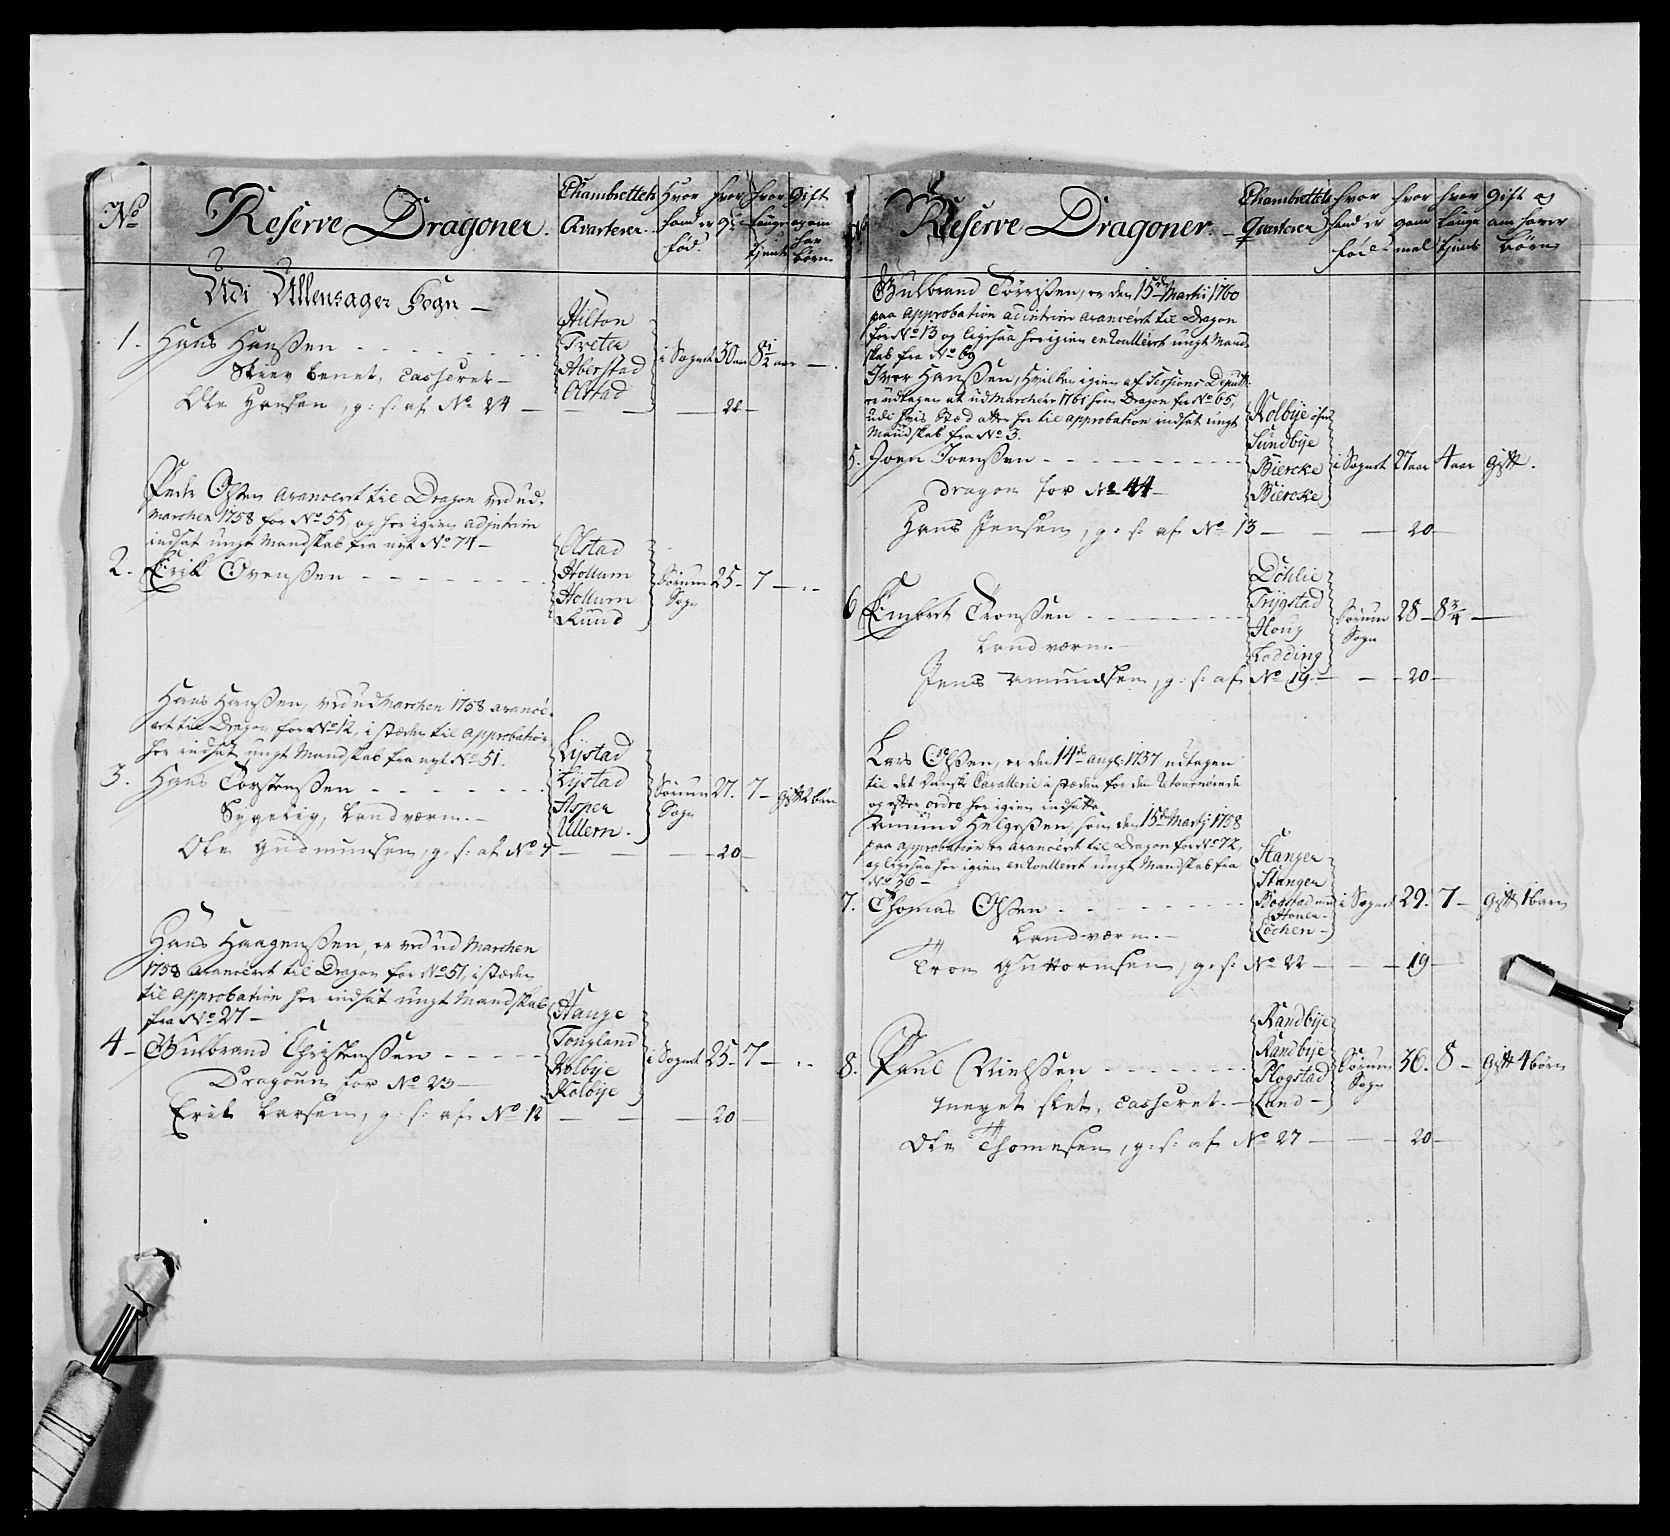 No
Reserve Dragoner.
Chambrettels
Qvarterer
Hvor
hand er
fød.
hvor
hvor
længe
tjent
Gift
og om
har
børn
Udi Ullensager Sogn —
1. Hans Hanssen
Hilton
Tveta
Aberstad
Olstad
i Sognet 30 aar 8 1/2 aar —
Skiev benet, Casseret —
Ole Hansen, g: s: af No 24 — 22 —
Peder Olssen avanceret til Dragon ved ud-
Marchen 1758 for No 55, og her igien adjntrim
indsat ungt Mandskab fra nyt No 74 —
2. Erik Evenssen
Olstad
Hollum
Hollum
Rund
Sørum
Sogn
25 — 7 —
Hans Hanssen, ved ud Marchen 1758 avance-
eret til Dragon for No 12, i stæden til Approbation
her indsat ungt Mandskab fra nyt No 51.
3. Hans Torstenssen
Lystad
Lystad
Asper
Ullern.
Sørum
Sogn
27. 7 — gift 2 børn
Sygelig, Landværn. —
Ole Gudmunsen, g: s: af No 7 — 20 —
Hans Haagenssen, er ved ud Marchen
1758 avanceret til Dragon for No 51, i stæden
til Approbation her indsat ungt Mandskab
fra No 27 —
4 — Gulbrand Christenssen
Hauge
Tongland
Kolbye
Kolbye
i Sognet 25 — 7 —
Dragoun for No 23 —
Erik Larsen, g: s: af No 12 — 20 —
Reserve Dragoner —
Chambrettels
Qvarterer
hvor
hand er
fød
hvor
gam
mel
hvor
længe
tjent
gift og
om haver
børn
Gulbrand Torrissen, er den 15de Martii 1760
paa Approbation adintrim avanceret til Dragon
for No 13 og ligesaa her igien enroulleret ungt Mand-
skab fra No 69
Iver Hanssen, hvilken igien af Sessions Deputt-
er udtagen at ud Marchere 1761 som Dragon for No 65,
udi hvis Stæd atter her til Approbation indsat ungt
Mandskab fra No 3.
5. Joen Joenssen
Kolbye
Sundbye
Biercke
Biercke
i Sognet 27 aar 4 aar Gift.
Dragon for No 44 —
Hans Jensen, g: s: af No 13 — 20 —
6 Embret Tronssen
Døhlie
Trygstad
Houg
Lodding
Sørum
Sogn
28 — 8 3/4 —
Landværn. —
Jens Amundsen, g: s: af No 19. — 20 —
Lars Olssen, er den 14de Aug: 1757 udtagen
til det Danske Cavallerie i stæden for den Retournerede
og efter ordre her igien indsatte
Amund Helgessen, som den 15de Martij 1758
paa Approbation er avanceret til Dragon for No 72,
og ligesaa her igien enroulleret ungt Mandskab fra
No 36 —
7. Thomas Olssen
Stanger
Stanger
Bogstad
Løchen —
i Sognet 29. 7 — Gift 1 barn
Landværn. —
Tron Guttormsen, g: s: No 22 — 19 —
8. Poul Nielssen
Randbye
Randbye
Plogstad
Land —
Sørum
Sogn
36. 8 — Gift 4 børn
meget slet, Casseret. —
Ole Thomesen, g: s: af No 27 — 20 —